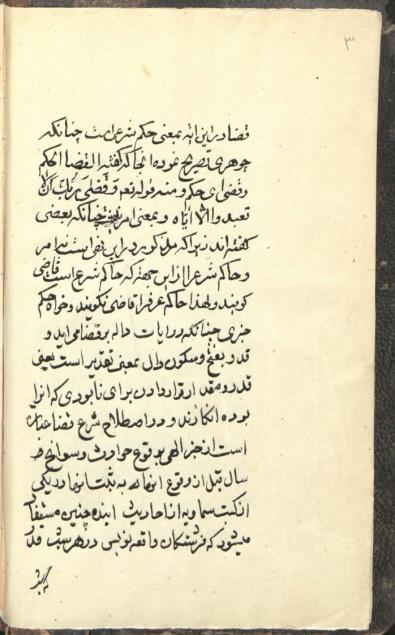 ۳
قضا در این آیه بمعنی حکم شرعی است چنانکه
جوهری تصریح نموده انجا که گفته القضا الحکم
و قضی ای حکم و منه قوله نعم و قضی ربک ان لا
تعبدوا الا ایاه و بمعنی امر نیست چنانکه بعضی
گفته اند زیرا که
و حاکم شرع را از این جهة که حاکم شرع است قاضی
گویند و لهذا حاکم عرف را قاضی نگویند و خواه حکم
جزی چنانکه در روایات داله بر قضا می اید و
قدر بفتح و سکون دال بمعنی تقدیر است یعنی
قدر و مقدار قرار دادن برای نابودی که انرا
بوده انکارند و در اصطلاح شرع قضا عبارت
است از خبر الهی بوقوع حوادث و سوانح هر
سال قبل از وقوع انها نه به ثبت انها در یکی
از کتب سماویه از احادیث اینده چنین مستفاد
میشود که فرشتگان واقعه نویس در هر شب قدر